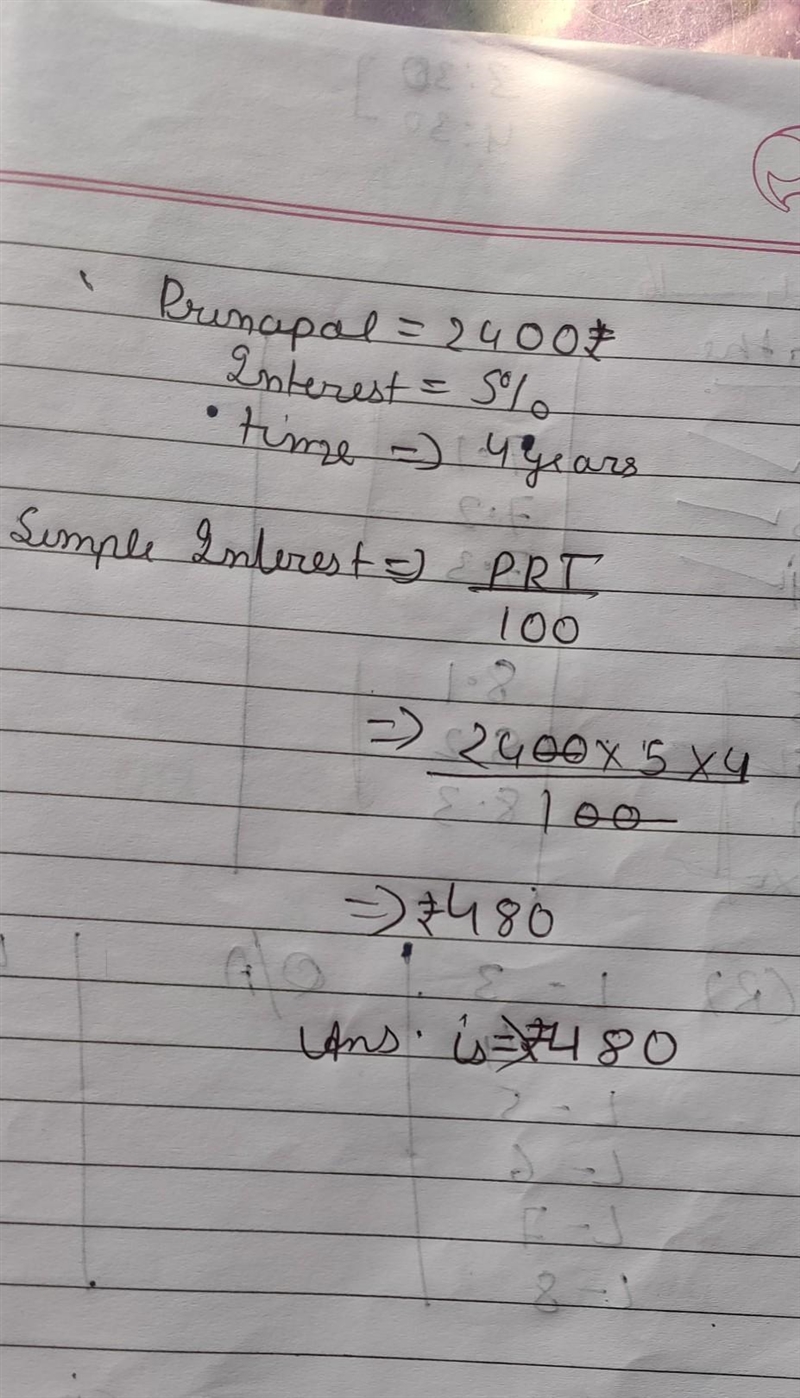 Principal = 2400₹
Interest = 5%
time => 4 years
Simple Interest => PRT
100
=> 2400 x 5 x 4
100
=> ₹480
Ans. is => ₹480